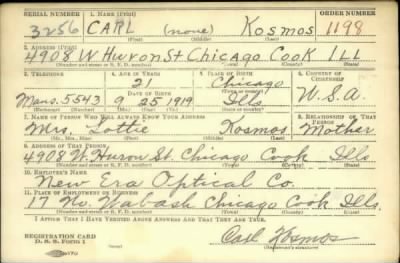 SERIAL NUMBER 1. NAME (Print) ORDER NUMBER
3256 CARL (none) Kosmos 1198
(First) (Middle) (Last)
2. ADDRESS (Print)
4908 W. Huron St. Chicago Cook ILL
(Number and street or R. F. D. number) (Town) (County) (State)
3. TELEPHONE 4. AGE IN YEARS 5. PLACE OF BIRTH 6. COUNTRY OF CITIZENSHIP
21 Chicago
DATE OF BIRTH (Town or county)
Mans. 5543 9 25 1919 Ills U.S.A.
(Exchange) (Number) (Mo.) (Day) (Yr.) (State or country)
7. NAME OF PERSON WHO WILL ALWAYS KNOW YOUR ADDRESS 8. RELATIONSHIP OF THAT PERSON
Mrs. Lottie Kosmos Mother
(Mr., Mrs., Miss) (First) (Middle) (Last)
9. ADDRESS OF THAT PERSON
4908 W. Huron St. Chicago Cook Ills
(Number and street or R. F. D. number) (Town) (County) (State)
10. EMPLOYER'S NAME
New Era Optical Co.
11. PLACE OF EMPLOYMENT OR BUSINESS
17 No. Wabash Chicago Cook Ills.
(Number and street or R. F. D. number) (Town) (County) (State)
I AFFIRM THAT I HAVE VERIFIED ABOVE ANSWERS AND THAT THEY ARE TRUE.
REGISTRATION CARD
D. S. S. Form 1
Carl Kosmos
(Registrant's signature)